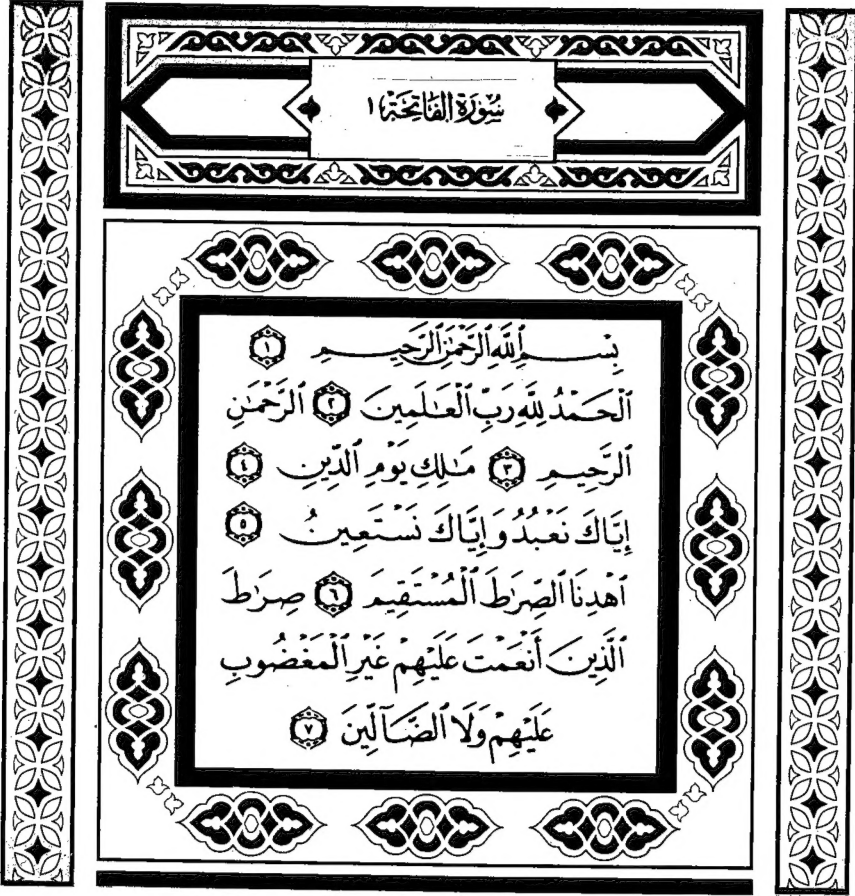 سُورَةُ الفَاتِحَة ١
بِسْمِ ٱللَّهِ ٱلرَّحْمَٰنِ ٱلرَّحِيمِ ١
ٱلْحَمْدُ لِلَّهِ رَبِّ ٱلْعَـٰلَمِينَ ٢ ٱلرَّحْمَـٰنِ
ٱلرَّحِيمِ ٣ مَـٰلِكِ يَوْمِ ٱلدِّينِ ٤
إِيَّاكَ نَعْبُدُ وَإِيَّاكَ نَسْتَعِينُ ٥
ٱهْدِنَا ٱلصِّرَٰطَ ٱلْمُسْتَقِيمَ ٦ صِرَٰطَ
ٱلَّذِينَ أَنْعَمْتَ عَلَيْهِمْ غَيْرِ ٱلْمَغْضُوبِ
عَلَيْهِمْ وَلَا ٱلضَّآلِّينَ ٧